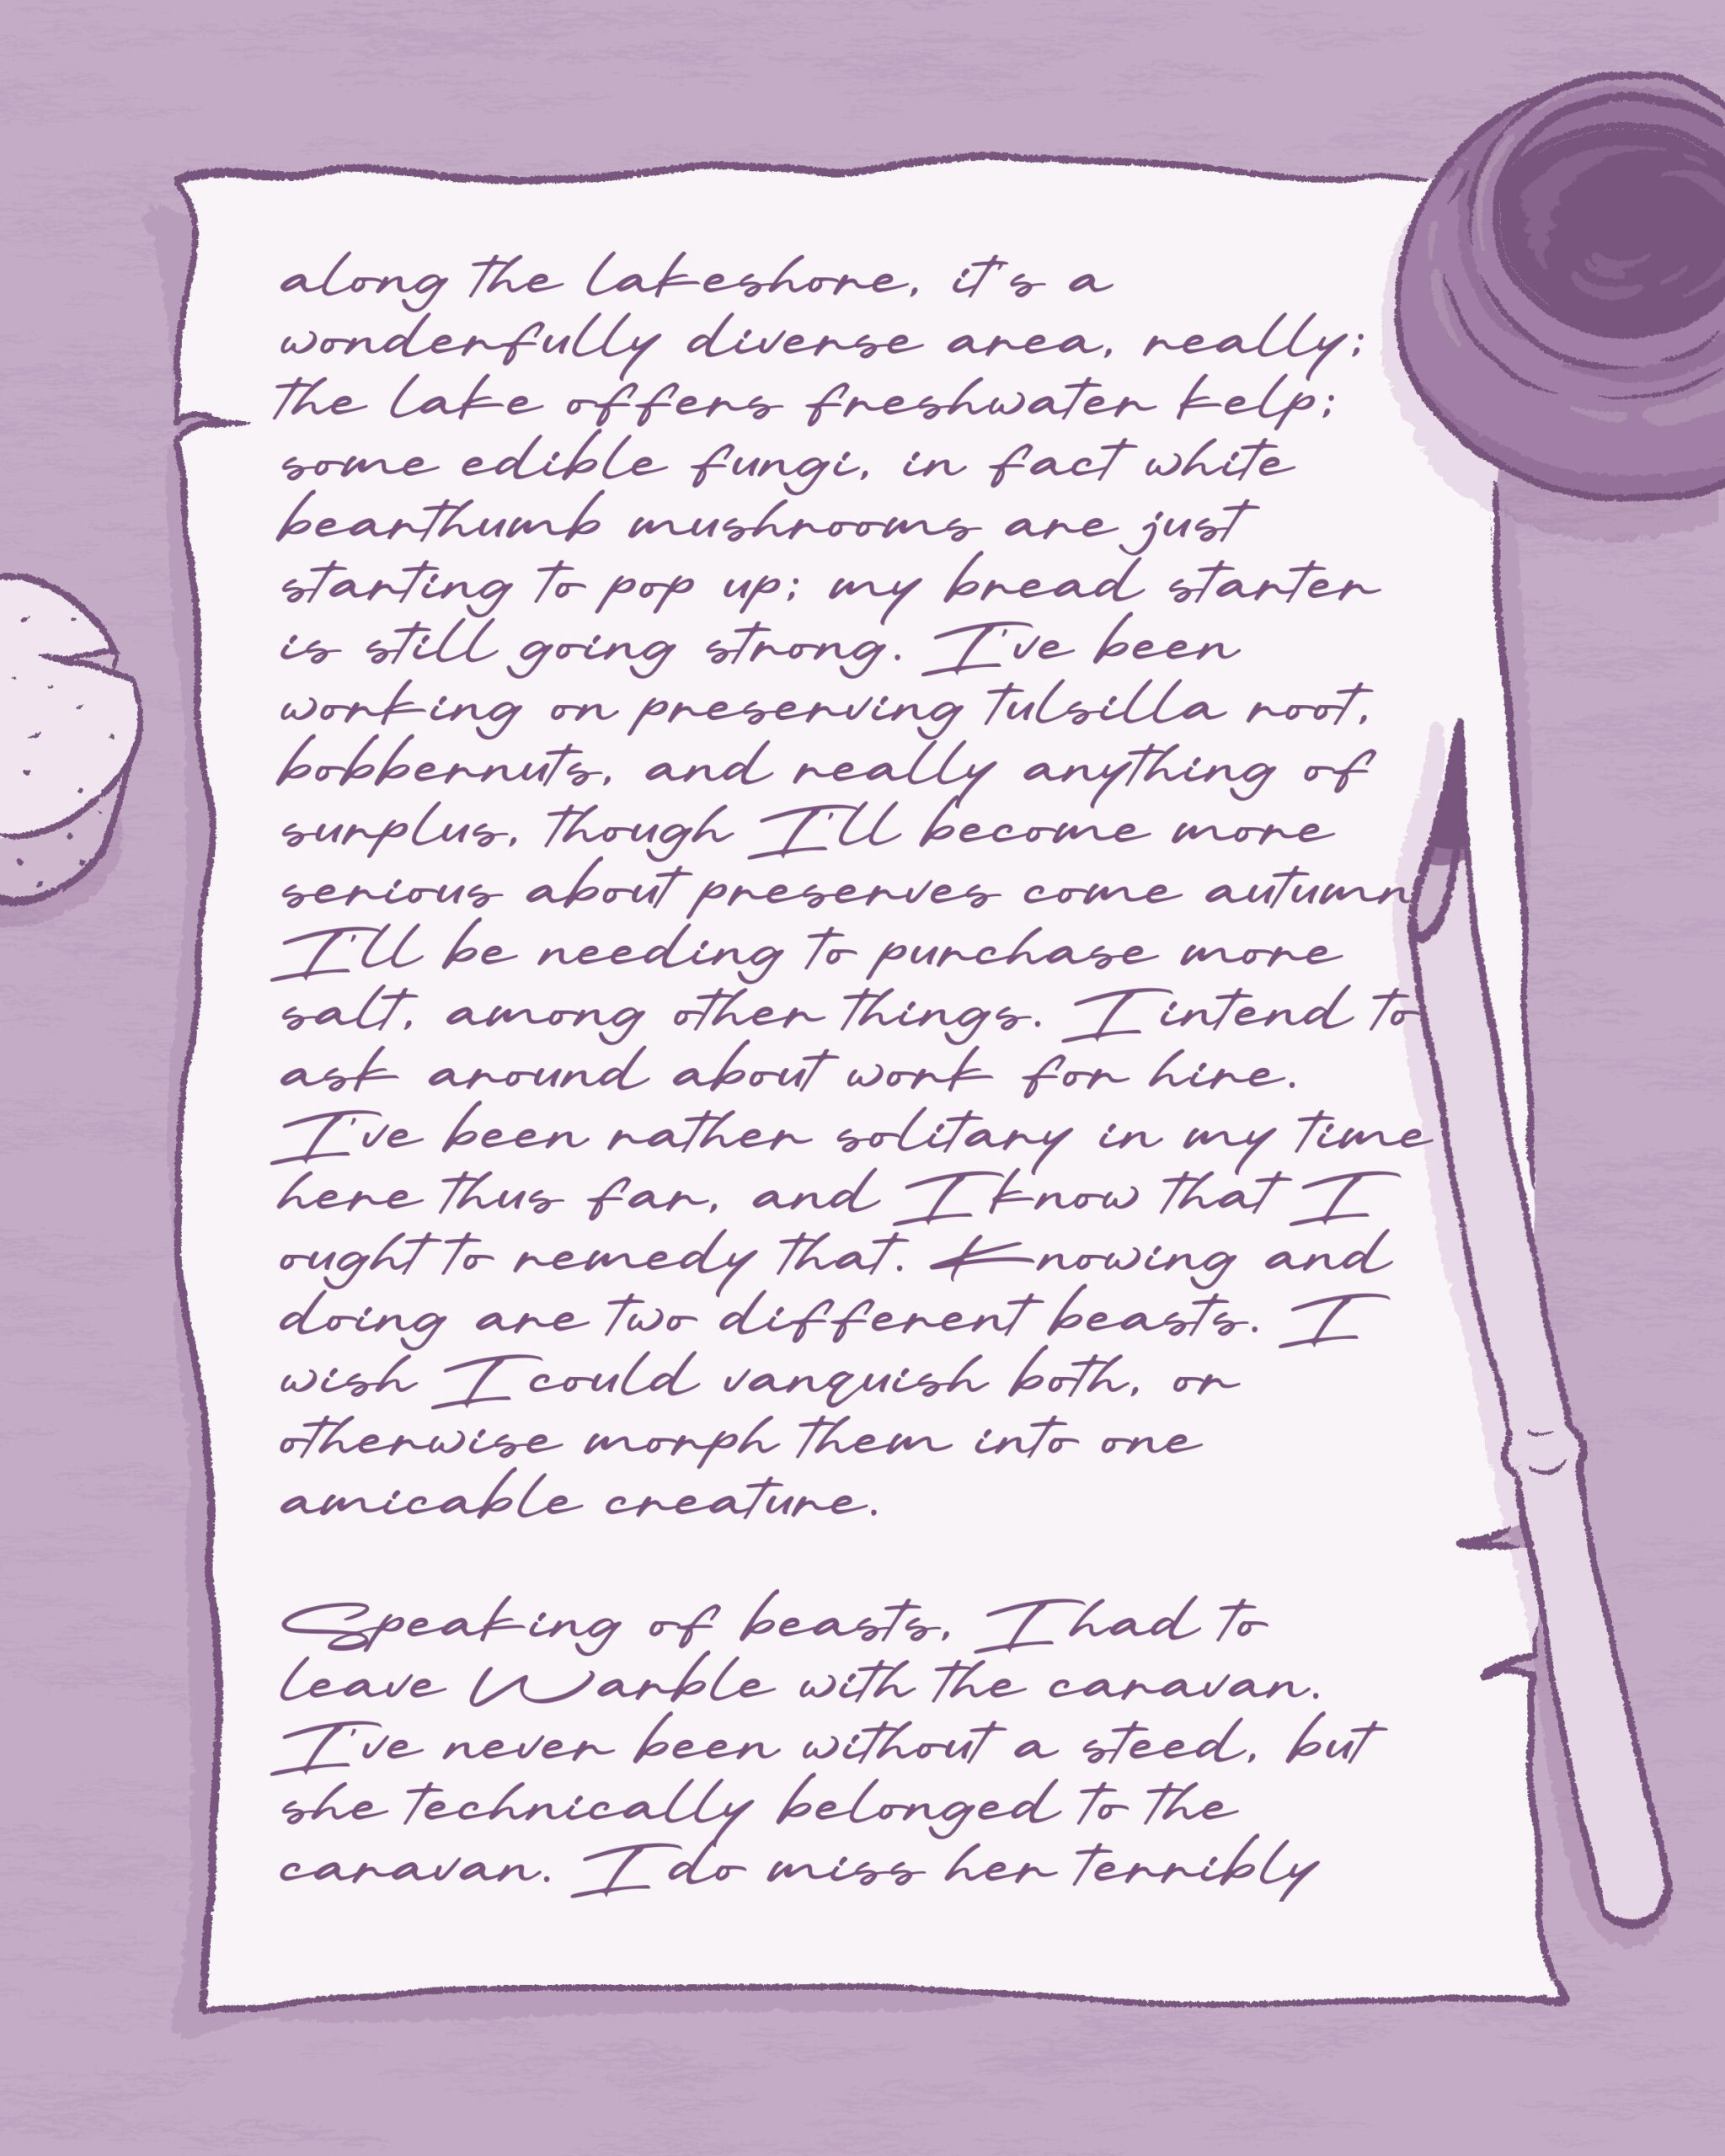 along the lakeshore, it's a
wonderfully diverse area, really;
the lake offers freshwater kelp;
some edible fungi, in fact white
bearthumb mushrooms are just
starting to pop up; my bread starter
is still going strong. I've been
working on preserving tulsilla root,
bobbernuts, and really anything of
surplus, though I'll become more
serious about preserves come autumn
I'll be needing to purchase more
salt, among other things. I intend to
ask around about work for hire.
I've been rather solitary in my time
here thus far, and I know that I
ought to remedy that. Knowing and
doing are two different beasts. I
wish I could vanquish both, or
otherwise morph them into one
amicable creature.
Speaking of beasts, I had to
leave Warble with the caravan.
I've never been without a steed, but
she technically belonged to the
caravan. I do miss her terribly